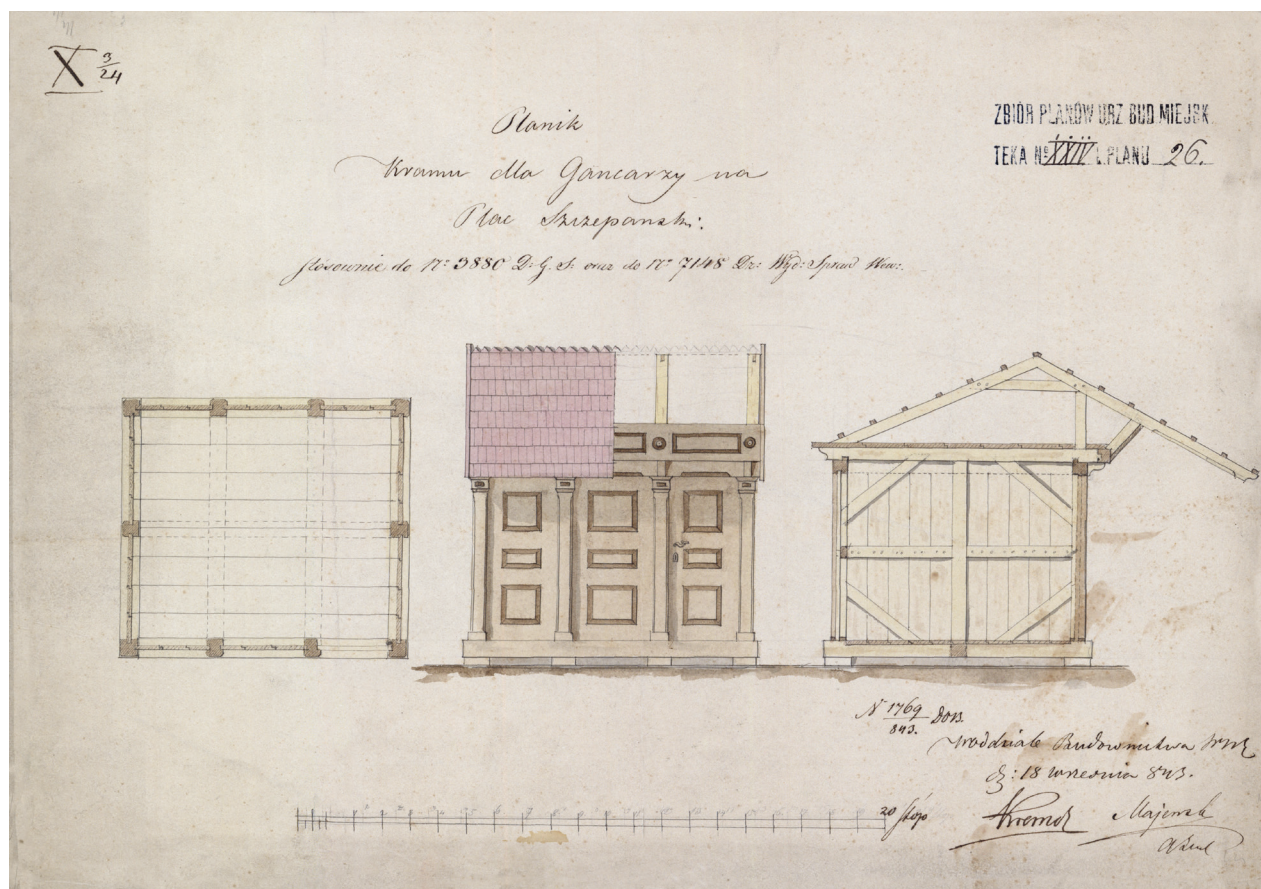 X 3/24
ZBIÓR PLANÓW URZ BUD MIEJSK
TEKA Nº XXIV L.PLANU 26.
Planik
Kramu dla Gancarzy na
Plac Szczepański:
stósownie do Nº 3880 D: G. S. oraz do Nº 7148 Dz: Wyd: Spraw Wew:
N 1769/843. DOB.
W oddziale Budownictwa
d: 18 września 843.
20 stóp
Kremer Majewsk